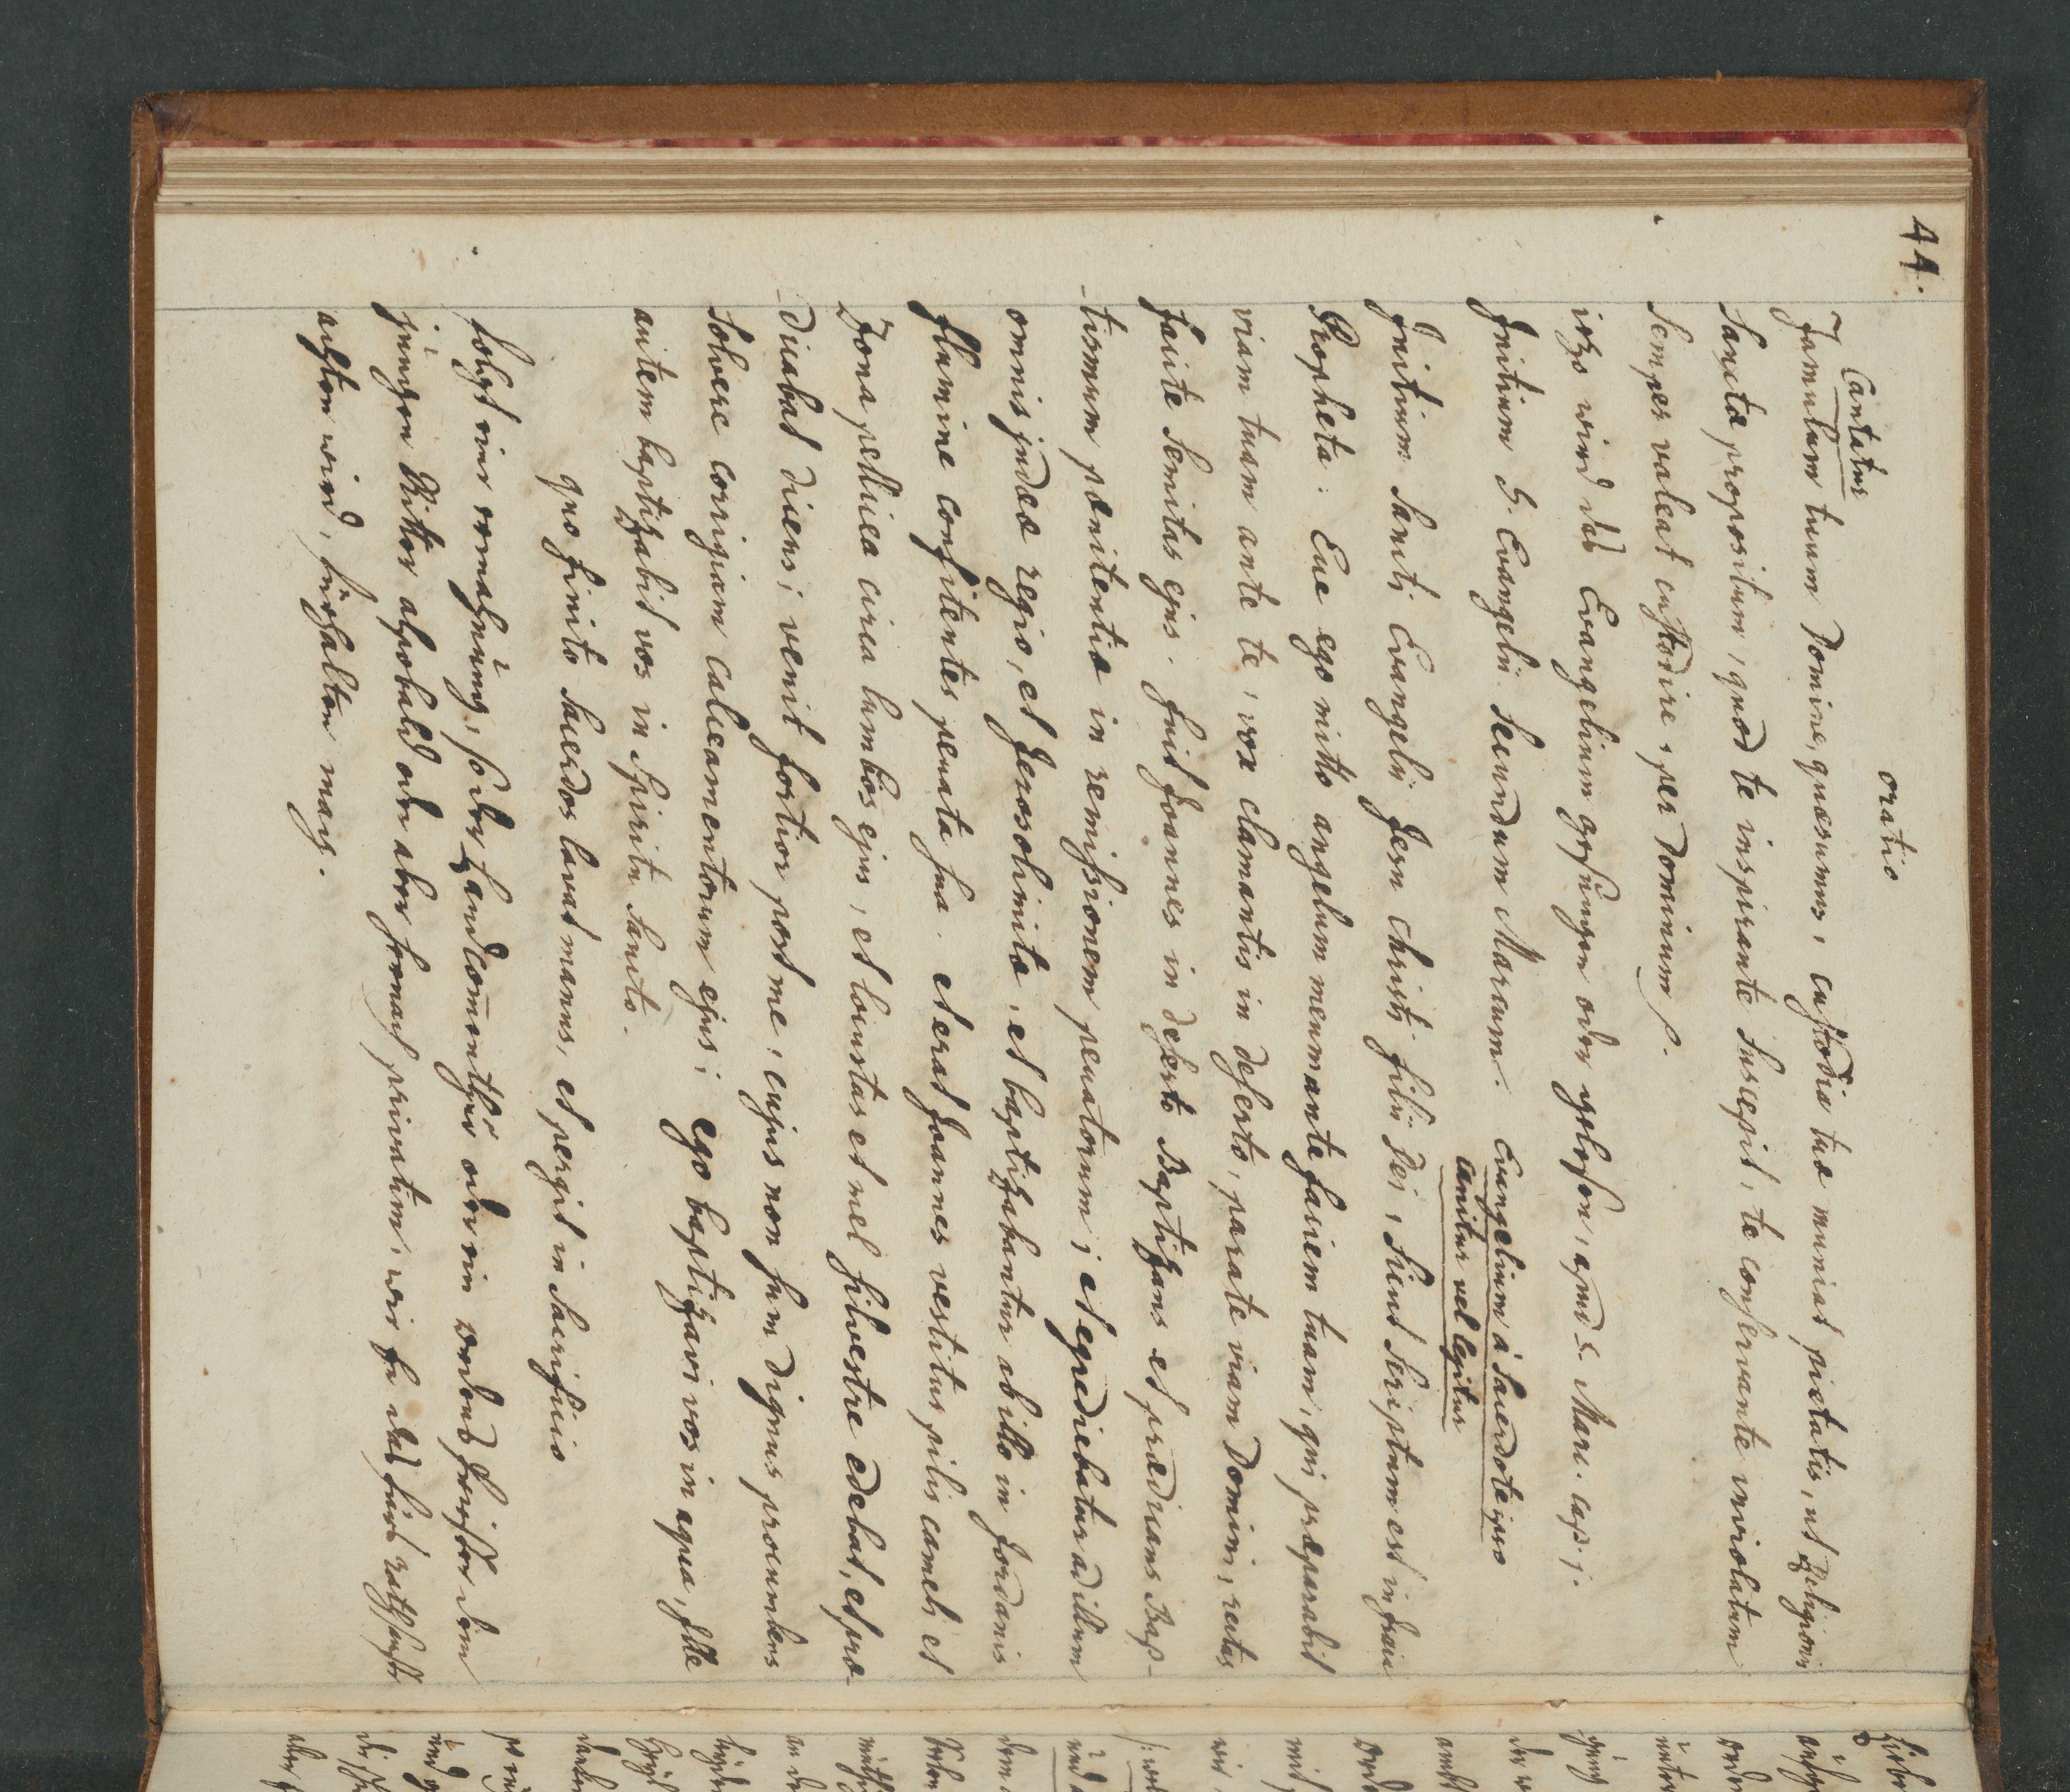 44.
oratio
Cantatur
Famulum tuum Domine, quæsumus, custodia tuæ muniat pietatis, ut Religionis
Sanctæ propositum, quod te inspirante suscepit, te conservante inviolatum
semper valeat custodire, per Dominum
iezo wird das Evangelium gesungen oder gelesen, apud S. Marc. cap. j.
Initium S. Evangelii secundum Marcum.
Evangelium à Sacerdote ipso
canitur vel legitur
Initium Sancti Evangelii Jesu Christi filii Dei, sicut scriptum est in Isaia
Propheta: Ecce ego mitto angelum meum ante faciem tuam, qui præparabit
viam tuam ante te, vox clamantis in deserto, parate viam Domini, rectas
facite semitas ejus. fuit Joannes in deserto Baptizans et prædicans Bap-
-tismum pænitentiæ in remissionem peccatorum; et egrediebatur ad illum
omnis judææ regio, et Jerosolimitæ, et baptizabantur ab illo in Jordanis
flumine confitentes peccata sua. et erat Joannes vestitus pilis cameli et
Zona pellicea circa lumbos ejus, et locustas et mel silvestre edebat, et præ-
-dicabat dicens; venit fortior post me, cujus non sum dignus procumbens
solvere corrigiam calceamentorum ejus; ego baptizavi vos in aqua, Ille
autem baptizabit vos in Spiritu Sancto.
quo finito Sacerdos lavat manus, et pergit in Sacrificio
folgt eine ermahnung, so der Landcomenthur oder ein ordens Priester dem
jungen Ritter alsobald oder aber hernach privatim, wie sie das fürs rathsamste
achten wird, fürhalten mag.